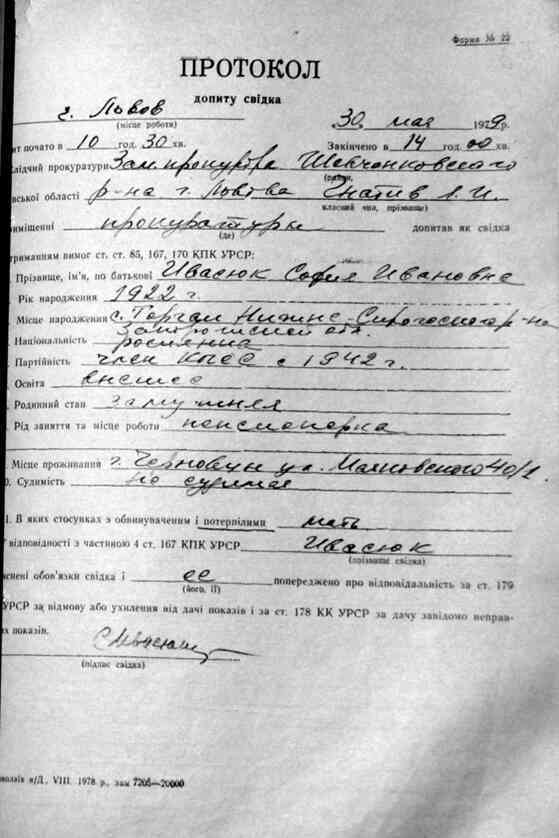 Форма № 22
ПРОТОКОЛ
допиту свідка
г. Львов 30 мая 1979 р.
(місце роботи)
ит почато в 10 год. 30 хв. Закінчено в 14 год. 00 хв.
лідчий прокуратури Зам прокурора Шевченковского
(район,
вської області р-на г. Львова Гнатив Л. И.
класний чин, прізвище)
иміщенні прокуратуры допитав як свідка
(де)
триманням вимог ст. ст. 85, 167, 170 КПК УРСР:
Прізвище, ім'я, по батькові Ивасюк София Ивановна
Рік народження 1922 г.
Місце народження с. Торгаи Нижне-Сирогосного р-на
Запорожской обл.
Національність росиянка
Партійність член КПСС с 1942 г.
Освіта высшее
Родинний стан замужняя
Рід заняття та місце роботи пенсионерка
Місце проживання г. Черновцы ул. Маяковского 40/1.
0. Судимість не судимая
1. В яких стосунках з обвинуваченим і потерпілими мать
відповідності з частиною 4 ст. 167 КПК УРСР Ивасюк
(прізвище свідка)
яснені обов'язки свідка і ее попереджено про відповідальність за ст. 179
(його, її)
УРСР за відмову або ухилення від дачі показів і за ст. 178 КК УРСР за дачу завідомо неправ-
их показів.
(підпис свідка)
в/Д, VIII. 1978 р., зам 7205—20000